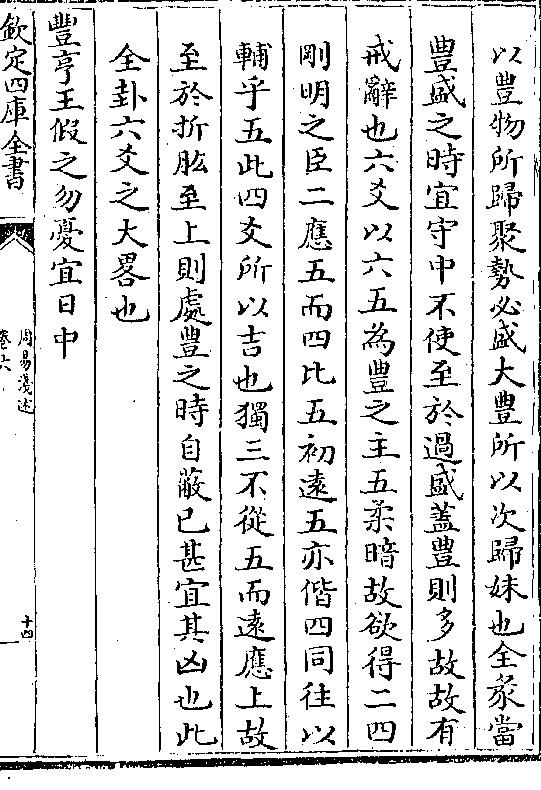 以豐物所歸聚勢必盛大豐所以次歸妹也全彖當
豐盛之時宜守中不使至於過盛蓋豐則多故故有
戒辭也六爻以六五為豐之主五柔暗故欲得二四
剛明之臣二應五而四比五初遠五亦偕四同往以
輔乎五此四爻所以吉也獨三不從五而遠應上故
至於折肱至上則處豐之時自蔽已甚宜其凶也此
全卦六爻之大畧也
豐亨王假之勿憂宜日中
欽定四庫全書
周易淺述
卷六
十四